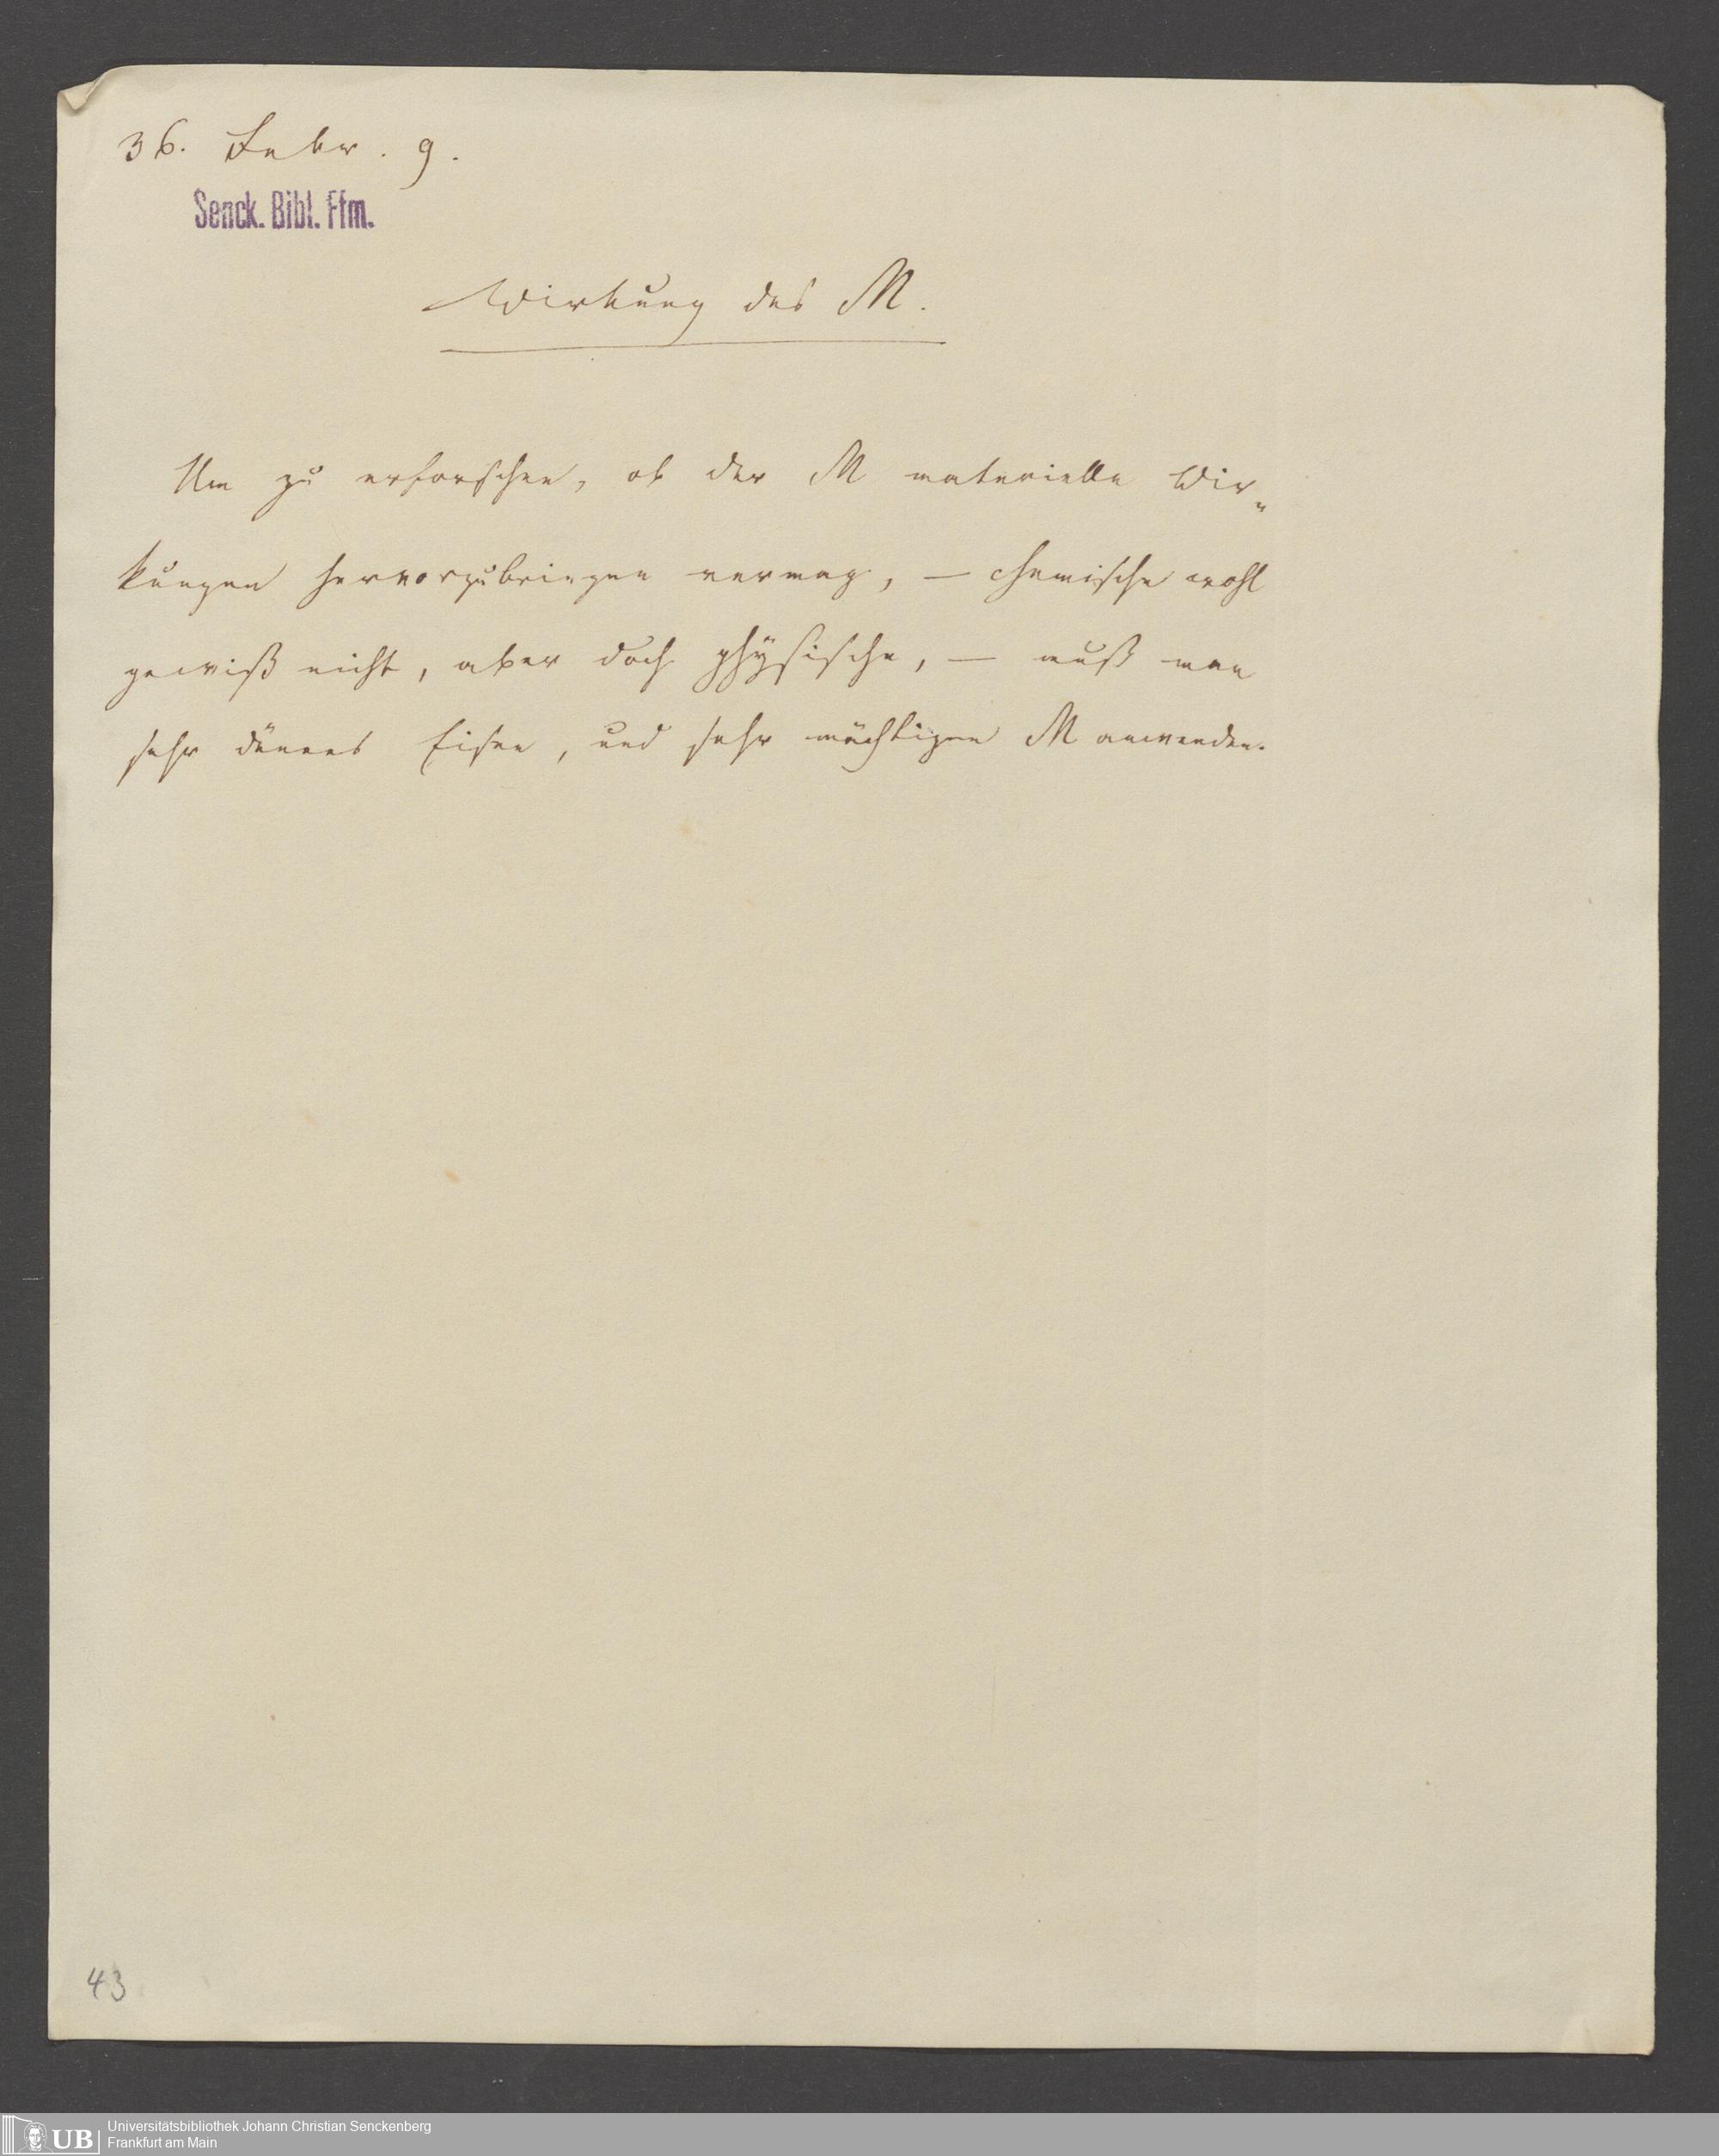 36. Febr. 9.
Senck. Bibl. Ffm.
Wirkung des M.
Um zu erforschen, ob der M materielle Wir„
kungen hervorzubringen vermag, — chemische wohl
gewiß nicht, aber doch physische, — muß man
sehr dünnes Eisen, und sehr mächtigen M anwenden.
43
UB
Universitätsbibliothek Johann Christian Senckenberg
Frankfurt am Main